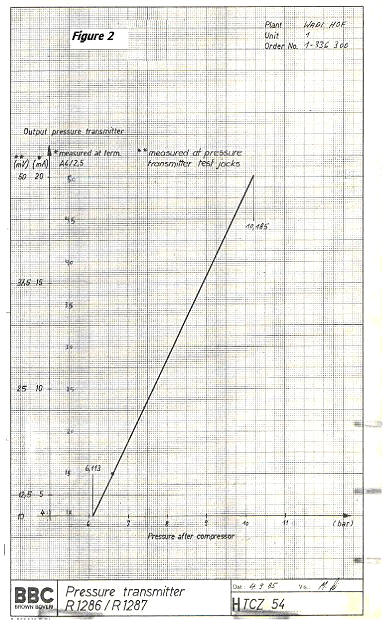 Figure 2
Plant WADI HOF
Unit 1
Order No. 1-936 300
Output pressure transmitter
** (mV) * (mA)
* measured at term. A6/2,5
** measured at pressure transmitter test jacks
50 20 50
45
10,185
40
37,5 15
35
30
25 10 25
20
6,113 15
12,5 5
10 4 10
6 7 8 9 10 11 (bar)
Pressure after compressor
BBC
BROWN BOVERI
Pressure transmitter
R1286/R1287
Dat. 4.9.85
HTCZ 54